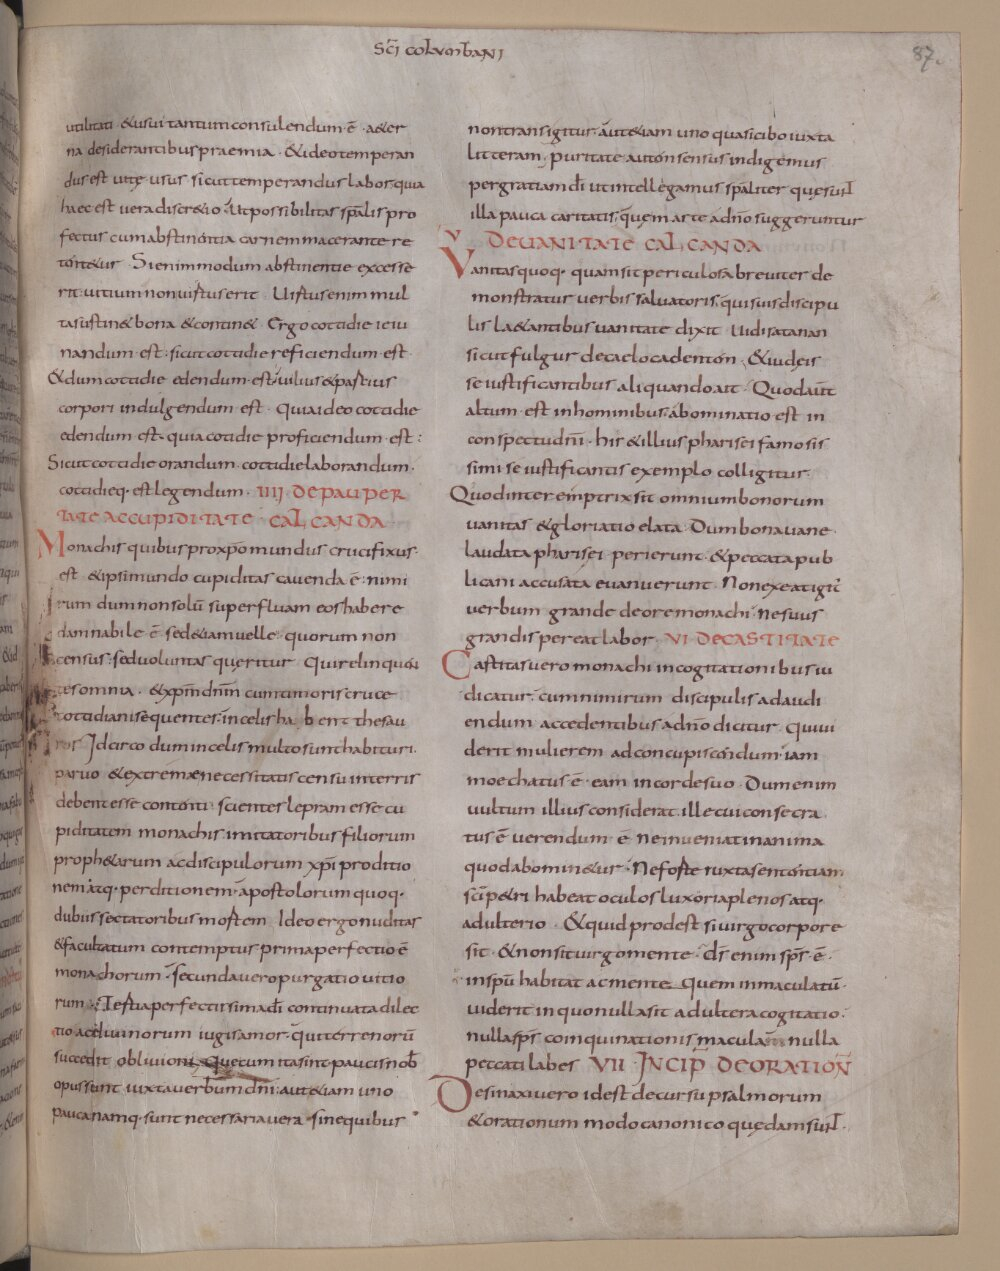 Sc̄i columbani
87.
utilitati · &usui tantum consulendum · ē · a&er
na desiderantibus praemia · &ideo temperan
dus est uitę usus sicut temperandus labor, quia
haec est uera discr&io · Ut possibilitas sp̄alis pro
fectus cum abstinentia carnem macerante re
tent&ur · Si enim modum abstinentie excesse
rit uitium non uirtus erit · Uirtus enim mul
ta sustin& bona &contin& · Ergo cotidie ieiu
nandum · est · sicut cottidie reficiendum · est
&dum cottidie edendum · est · uilius &partius
corpori indulgendum est · Quia ideo cottidie
edendum · est · quia cotidie proficiendum · est :
Sicut cottidie orandum · cottidie laborandum ·
cottidieq · est legendum · IIII · DE PAUPER
TATE AC CUPIDITATE · CALCANDA
Monachis quibus pro xp̄o mundus crucifixus ·
est · &ipsi mundo cupiditas cauenda ē : nimi
rum dum non solū superfluam eos habere
damnabile ē · sed &iam uelle · quorum non
census · sed uoluntas queritur · Qui relinquen
tes omnia · &xp̄m dn̄m cum timoris cruce
cottidiani sequentes · in celis habent thesau
ros · Idcirco dum in celis multo sunt habituri ·
paruo &extremę necessitatis censu in terris
debent esse contenti · scientes lepram esse cu
piditatem monachis imitatoribus filiorum
proph&arum ac discipulorum xp̄i proditio
nem atq · perditionem · apostolorum quoq ·
dubiis sectatoribus mortem · Ideo ergo nuditas
&facultatum contemptus prima perfectio ē
monachorum · secunda uero purgatio uitio
rum · Tertia perfectissima dī continuata dilec
tio ac diuinorum iugis amor · qui terrenorū
succedit obliuioni · Que cum ita sint paucis nob̄
opus sunt iuxta uerbum dn̄i : aut &iam uno
Pauca namq · sunt necessaria uera · sine quibus
non transigitur · aut &iam uno quasi cibo iuxta
litteram · puritate autem sensus indigemus
per gratiam dī ut intellegamus sp̄aliter quę sunt
illa pauca caritatis, quem arte ad n̄o suggeruntur
V DE UANITATE CALCANDA
Vanitas quoq · quam sit periculosa breuiter de
monstratur uerbis saluatoris, qui suis discipu
lis la&antibus uanitate dixit · Uidi satanan
sicut fulgur de caelo cadentem · &iudeis
se iustificantibus aliquando ait · Quod aut̄
altum · est in hominibus · abominatio · est · in
conspectu dn̄i · hir &illius pharisei famosis
simi se iustificantis exemplo colligitur ·
Quod interemptrix sit omnium bonorum
uanitas &gloriatio elata · Dum bona uane
laudata pharisei perierunt · &peccata pub
licani accusata euanuerunt · Non exeat igit̄
uerbum grande de ore monachi · ne suus
grandis pereat labor · VI DE CASTITATE
Castitas uero monachi in cogitationibus iu
dicatur · cum nimirum discipulis ad audi
endum accedentibus ad n̄o dicitur · Qui ui
derit mulierem ad concupiscendum · iam
moechatus ē · eam in corde suo · Dum enim
uultum illius considerat ille cui consecra
tus ē uerendum · ē · ne inueniat in anima
quod abomin&ur · Ne forte iuxta sententiam
sc̄i p&ri habeat oculos luxoria plenos atq ·
adulterio · &quid prodest si uirgo corpore
sit · &non sit uirgo mente · ds̄ enim sp̄s · ē ·
in spū habitat ac mente · Quem inmaculatū ·
uiderit in quo nulla sit adultera cogitatio ·
nulla sp̄s coinquinationis macula · nulla
peccati labes VII · INCIP̄ DE ORATION̄
De sinaxi uero id est de cursu psalmorum
&orationum modo canonico quędam sunt ·